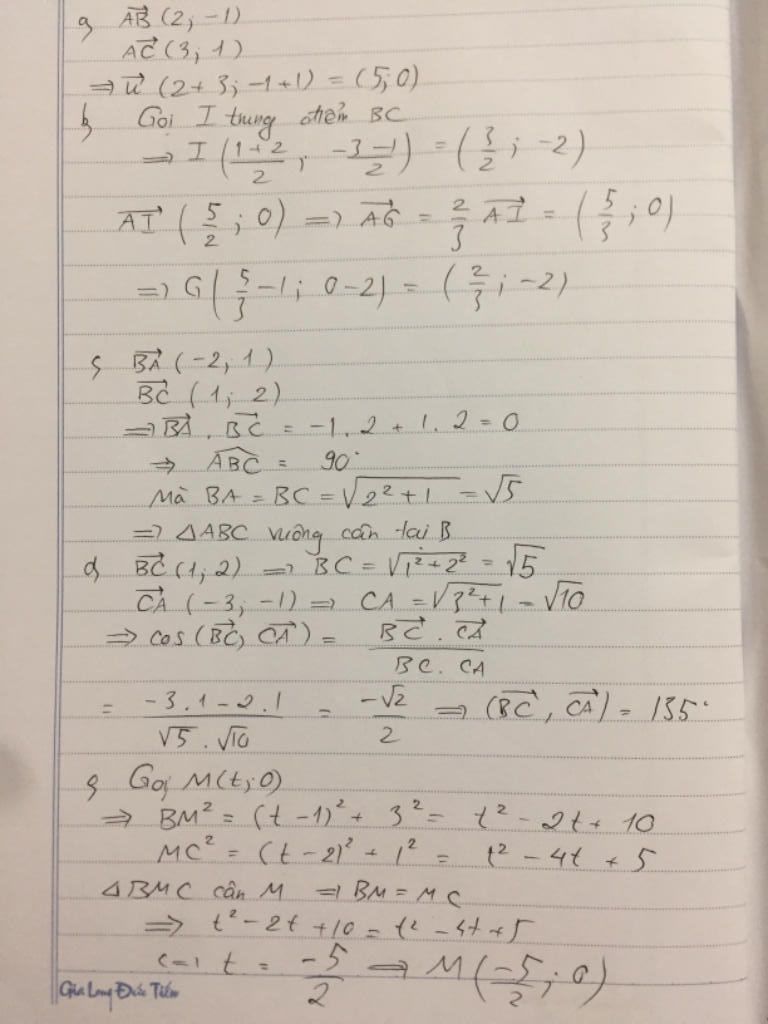 a) AB→ (2; -1)
AC→ (3; 1)
=> u→ (2+3; -1+1) = (5; 0)
b) Gọi I trung điểm BC
=> I ((1+2)/2; (-3-1)/2) = (3/2; -2)
AI→ (5/2; 0) => AG→ = 2/3 AI→ = (5/3; 0)
=> G(5/3 - 1; 0-2) = (2/3; -2)
c) BA→ (-2; 1)
BC→ (1; 2)
=> BA→ . BC→ = -1.2 + 1.2 = 0
=> ABC^ = 90°
Mà BA = BC = √(2²+1) = √5
=> △ABC vuông cân tại B
d) BC→ (1; 2) => BC = √(1²+2²) = √5
CA→ (-3; -1) => CA = √(3²+1) = √10
=> cos(BC→, CA→) = (BC→ . CA→)/(BC . CA)
= (-3.1 - 2.1)/(√5 . √10) = -√2/2 => (BC→, CA→) = 135°
e) Gọi M(t; 0)
=> BM² = (t-1)² + 3² = t² - 2t + 10
MC² = (t-2)² + 1² = t² - 4t + 5
△BMC cân M => BM = MC
=> t² - 2t + 10 = t² - 4t + 5
<=> t = -5/2 => M(-5/2; 0)
Gia Long Đức Tiến